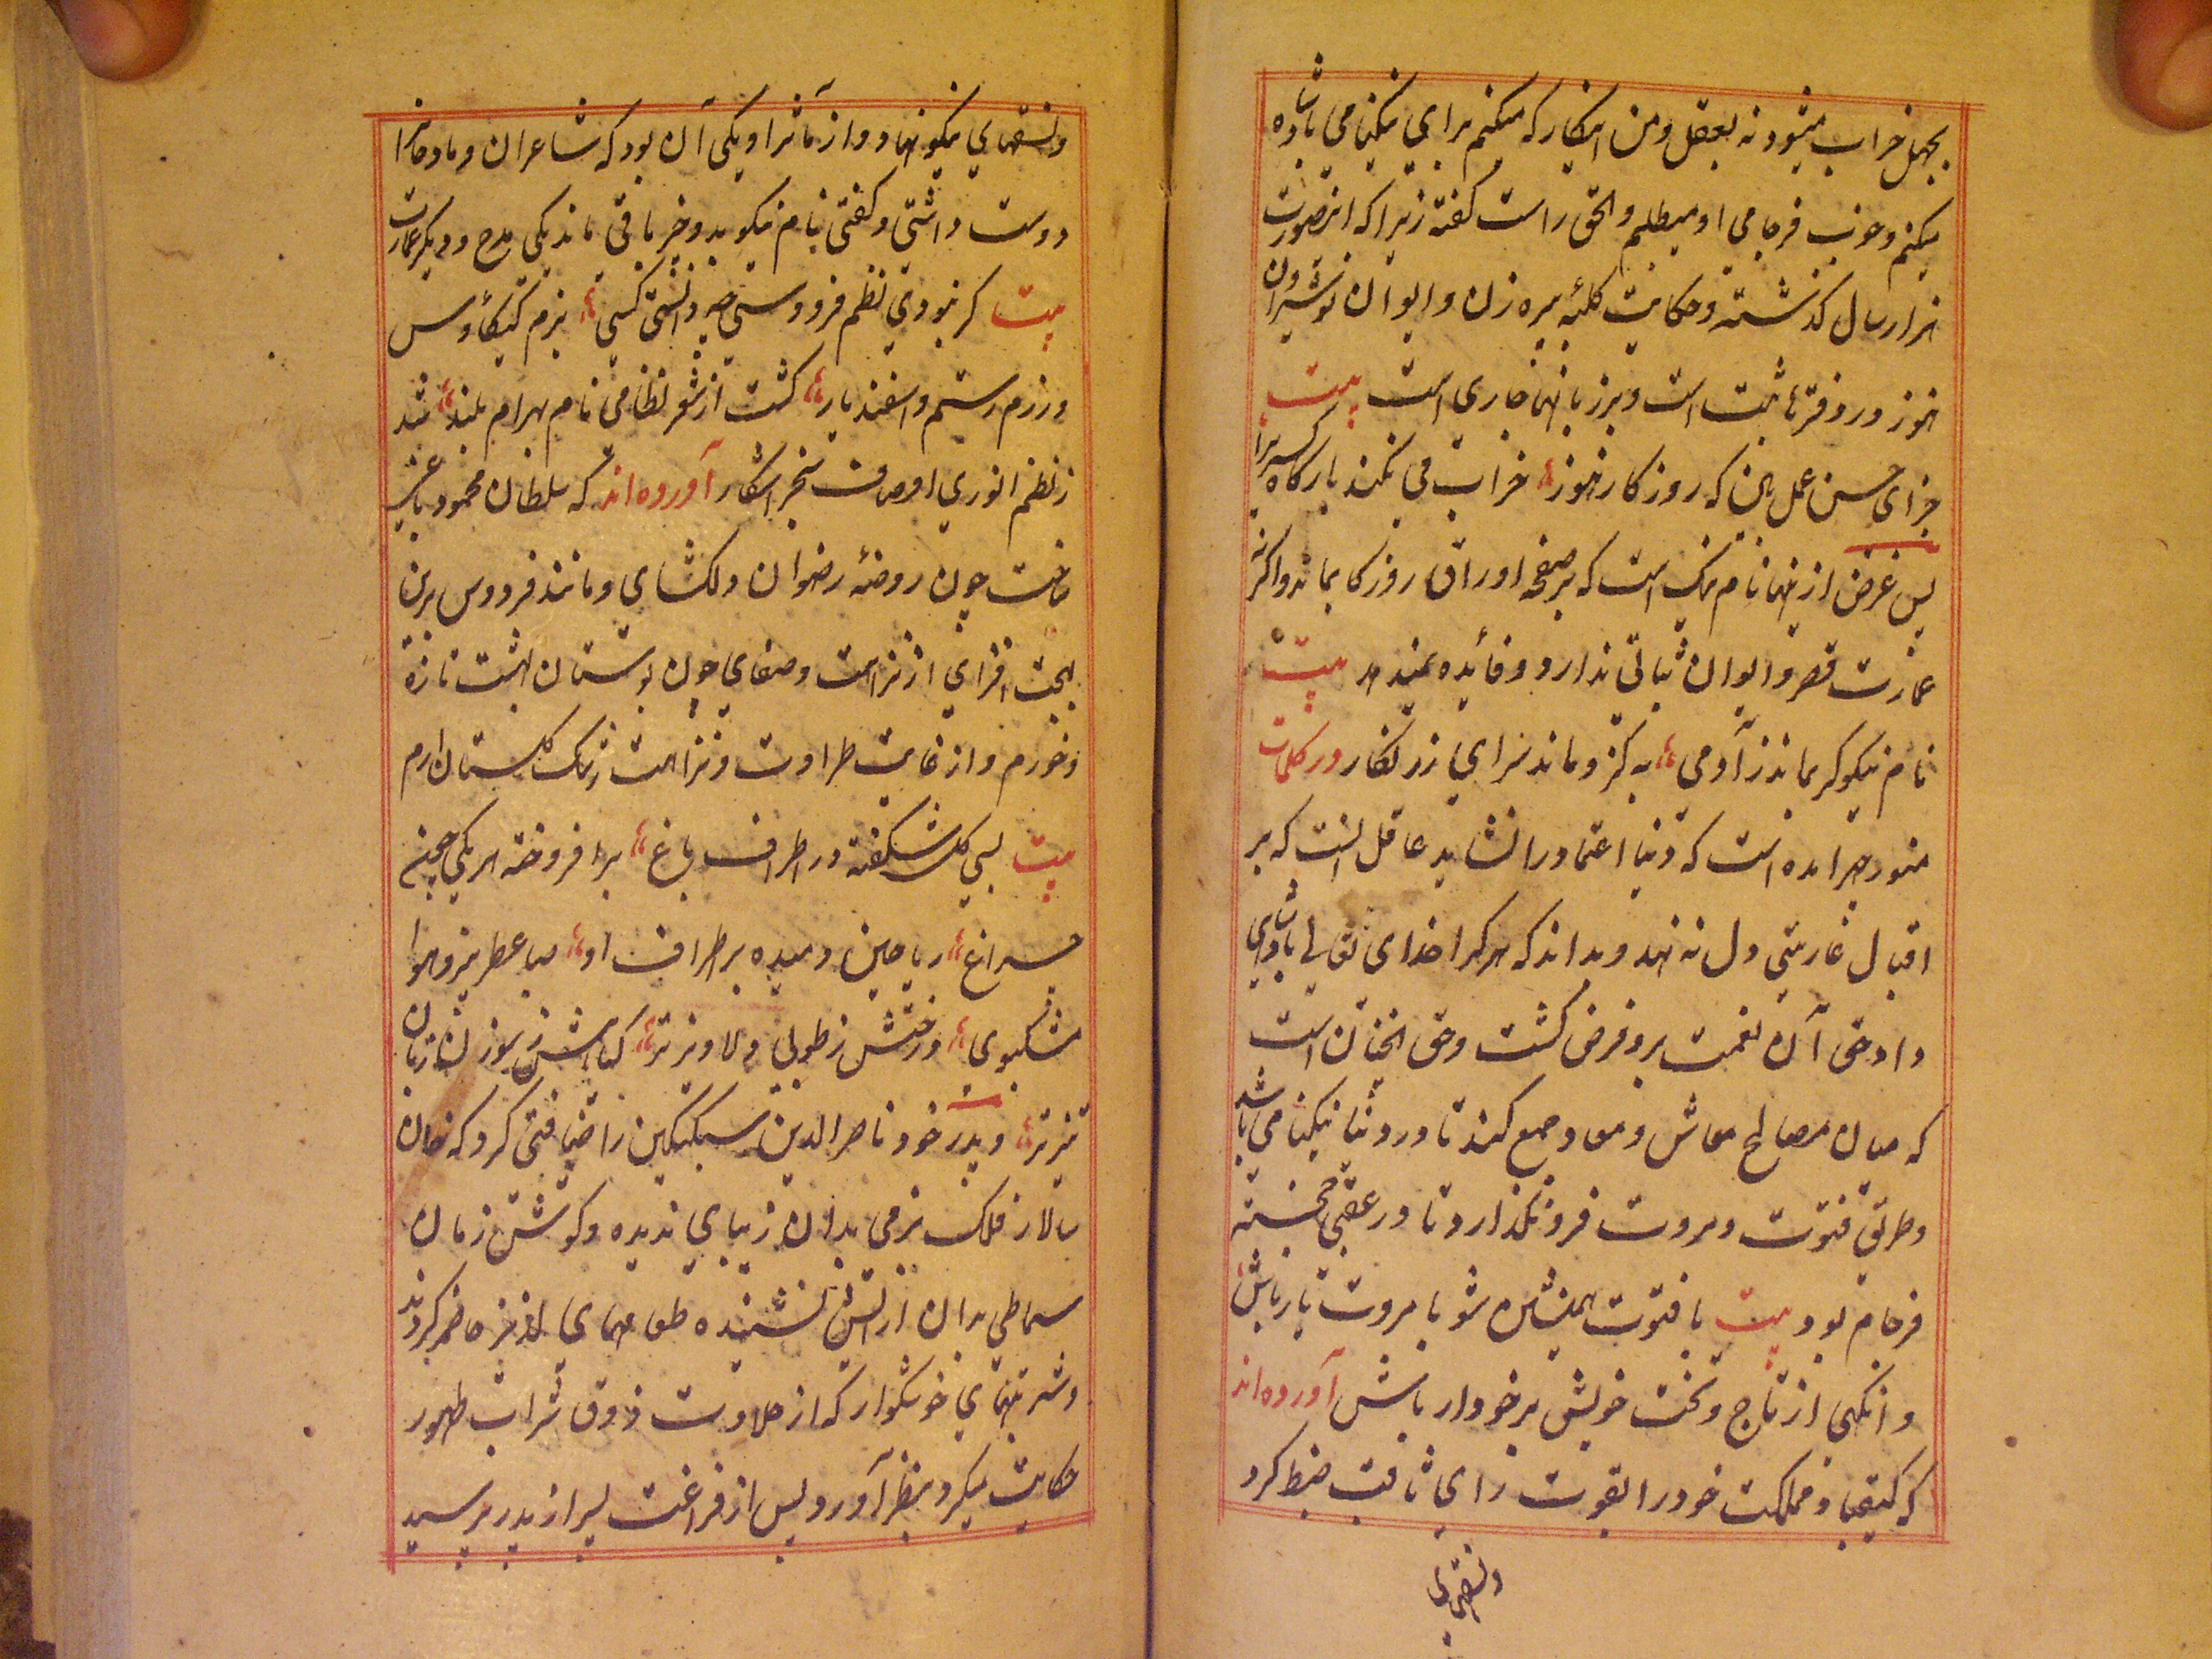 بجهل خراب میشود نه بعقل و من اینکار که میکنم برای نیکنامی پادشاه
میکنم و خوب فرجامی او میطلبم والحق راست گفته زیرا که ازینصورت
هزار سال گذشته و حکایت کلبه پیره زن و ایوان نوشیروان
هنوز در دفترها ثبت است و بر زبانها جاری است بیت
جزای حسن عمل بین که روزگار هنوز خراب می نکند بارگاه کسری را
پس غرض ازینها نام نیک است که بر صفحه اوراق روزگار بماند و اگرنه
عمارت قصر و ایوان ثباتی ندارد و فائده نمیدهد بیت
نام نیکو گر بماند ز آدمی به کزو ماند سرای زرنگار در کلمات
منوچهر آمده است که دنیا اعتماد را نشاید عاقل انست که بر
اقبال عاریتی دل نه نهد و بداند که هر کرا خدای تعالی پادشاهی
داد حق آن نعمت برو فرض گشت و حق انچنان است
که میان مصالح معاش و معاد جمع کند تا در دنیا نیکنامی باشد
و طریق فتوت و مروت فرو نگذارد تا در عقبی خجسته
فرجام بود بیت با فتوت همنشین شو با مروت یار باش
و انگهی از تاج و تخت خویش برخوردار باش آورده اند
که کیقباد مملکت خود را بقوت رای ثاقب ضبط کرد
ونسقهای
ونسقهای نیکو نهاد و از مآثر او یکی آن بود که شاعران و مادحانرا
دوست داشتی و گفتی نیام نیکو بدو چیز باقی ماند یکی مدح و دیگر عمارت
بیت گر نبودی نظم فردوسی چه دانستی کسی بزم کیکاؤس
و رزم رستم و اسفندیار گشت از شعر نظامی نام بهرام بلند شد
ز نظم انوری اوصاف سنجر آشکار آورده اند که سلطان محمود باغی
ساخت چون روضه رضوان دلکشای و مانند فردوس برین
بهجت افزای از نزاهت و صفای چون بوستان بهشت تازه
و خورم و از غایت طراوت و نزاهت رشک گلستان ارم
بیت بسی گل شگفته در اطراف باغ برافروخته هر یکی چون
چراغ ریاحین دمیده بر اطراف او صبا عطر بیز و هوا
مشکبوی درختش ز طوبی دلاویزتر گیاهش ز سوزن زبان
تیزتر و پدر خود ناصرالدین سبکتگین را ضیافتی کرد که خوان
سالار فلک بزمی بدان زیبای ندیده و گوش زمان
سماطی بدان ارایش نشنیده طعامهای لذیذ حاضر کردند
و شربتهای خوشگوار که از حلاوت ذوق شراب طهور
حکایت میکرد بنظر آورد پس از فراغت پسر از پدر پرسید